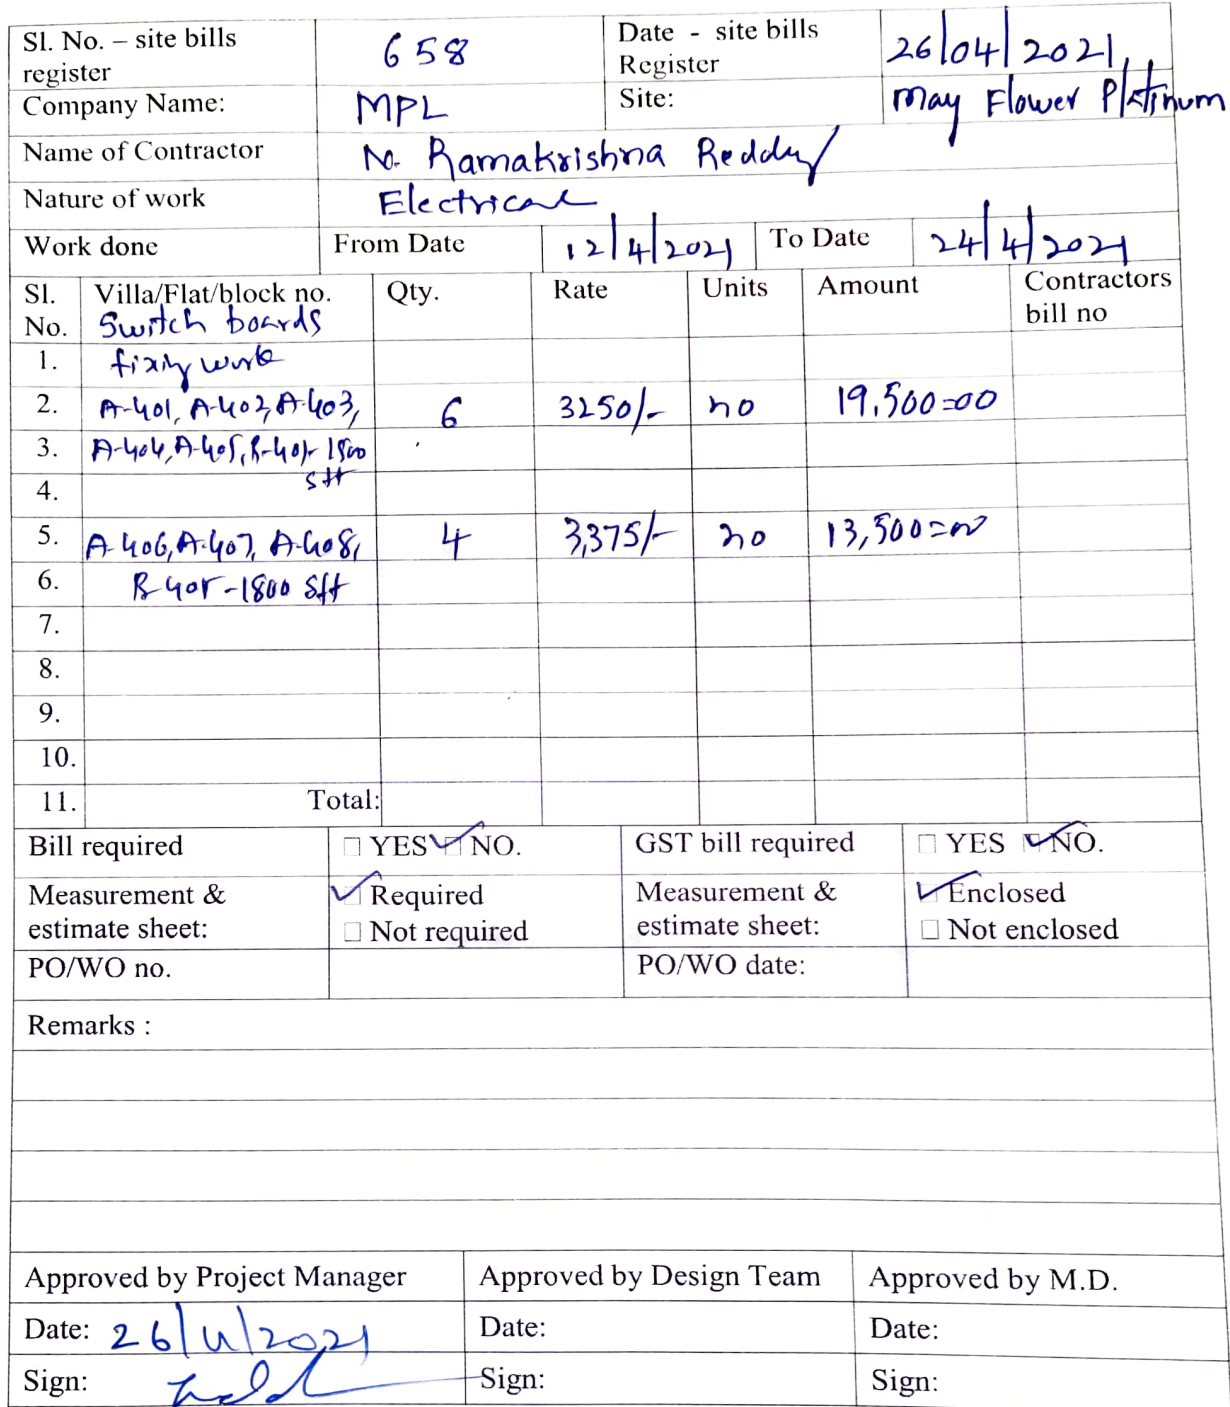 Sl. No. – site bills register 658 Date - site bills Register 26/04/2021
Company Name: MPL Site: May Flower Platinum
Name of Contractor N. Ramakrishna Reddy
Nature of work Electrical
Work done From Date 12/4/2021 To Date 24/4/2021
Sl. No. Villa/Flat/block no. Qty. Rate Units Amount Contractors bill no
Switch boards
1. fixing work
2. A-401, A-402, A-403, 6 3250/- no 19,500=00
3. A-404, A-405, B-401- 1500
sft
4.
5. A-406, A-407, A-408, 4 3,375/- no 13,500=00
6. B-405 - 1800 sft
7.
8.
9.
10.
11. Total:
Bill required YES NO. GST bill required YES NO.
Measurement & estimate sheet: Required Measurement & estimate sheet: Enclosed
Not required Not enclosed
PO/WO no. PO/WO date:
Remarks :
Approved by Project Manager Approved by Design Team Approved by M.D.
Date: 26/4/2021 Date: Date:
Sign: Sign: Sign: